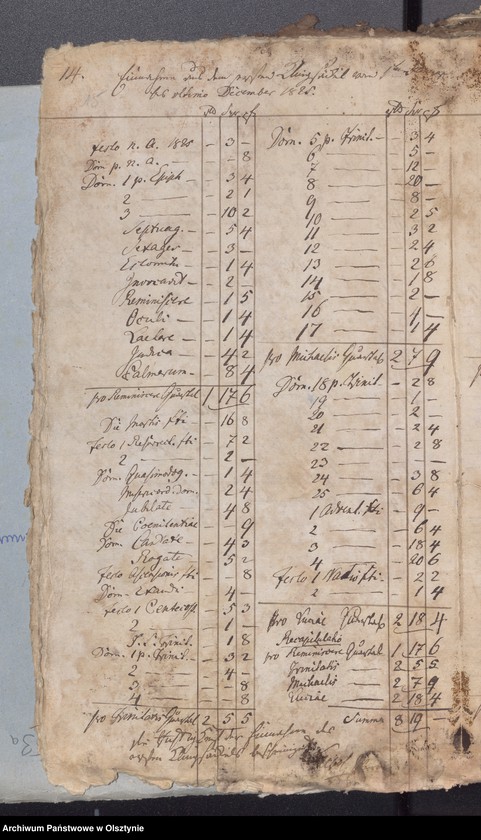 14. Einnahme aus dem ersten Klingsäckel vom 1ten
bis ultimo December 1825.
festo n. A. 1825 — 3 —
Dom p. n. A. — 8
Dom. 1 p. Epiph — 3 4
2 — 2 1
3 — 10 2
Septuag. — 5 4
Sexages — 3 —
Estomihi — 1 4
Invocavit — 2 —
Reminiscere — 1 5
Oculi — 1 4
Laetare — 1 4
Judica — 4 2
Palmarum — 8 4
pro Reminiscere Quartal 1 17 6
Die — 16 8
festo 1 — 7 2
2 — 2 —
Dom. Quasimodog. — 1 4
Misericord. Dom. — 2 4
Jubilate — 4 8
Die Poenitentiae — 9
Dom. Cantate — 4 3
Rogate — 5 2
festo Ascensionis — 8
Dom. Exaudi — 4 —
festo 1 Pentecost — 5 3
2 — 1 —
Trinit. — 1 8
Dom. 1 p. Trinit. — 3 2
2 — 4 —
3 — 8
4 — 8
pro Trinitatis Quartal 2 5 5
Dom. 5 p. Trinit. — 3 4
6 — 5 —
7 — 12 —
8 — 20 —
9 — 8 —
10 — 2 5
11 — 3 2
12 — 2 4
13 — 2 6
14 — 1 8
15 — 2 —
16 — 4 —
17 — 1 4
pro Michaelis Quartal 2 7 9
Dom. 18 p. Trinit — 2 8
19 — 1 —
20 — 2 —
21 — 2 4
22 — 2 8
23 —
24 — 3 8
25 — 6 4
1 Advent — 9 —
2 — 6 4
3 — 18 4
4 — 20 6
festo 1 — 2 2
2 — 1 4
pro Luciae Quartal 2 18 4
Recapitulatio
pro Reminiscere Quartal 1 17 6
Trinitatis 2 5 5
Michaelis 2 7 9
Luciae 2 18 4
Summa 8 19 —
der Einnahme des
ersten
Archiwum Państwowe w Olsztynie